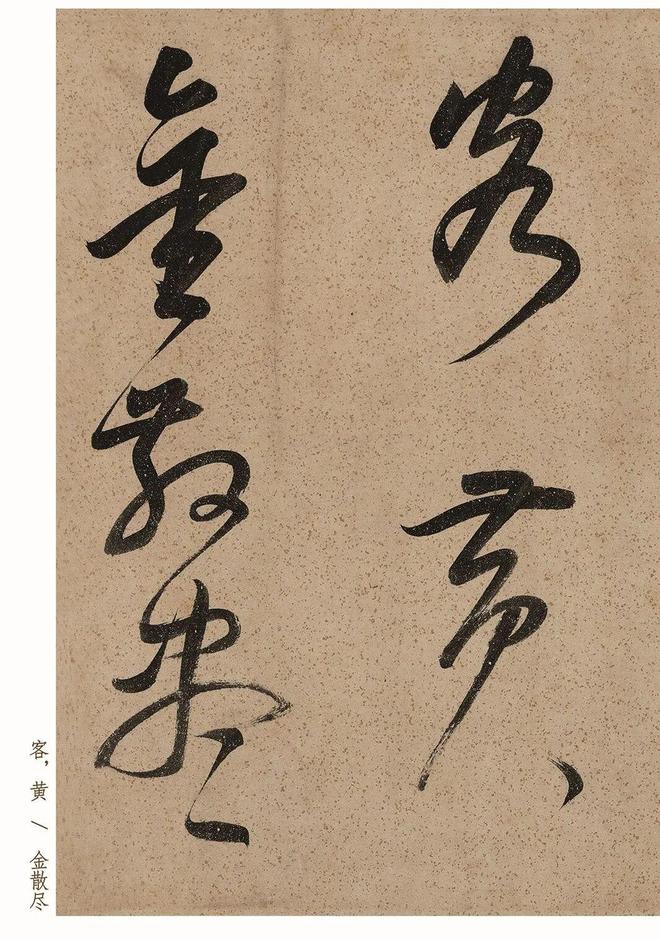 客黄
金散盡
客，黄 / 金散尽